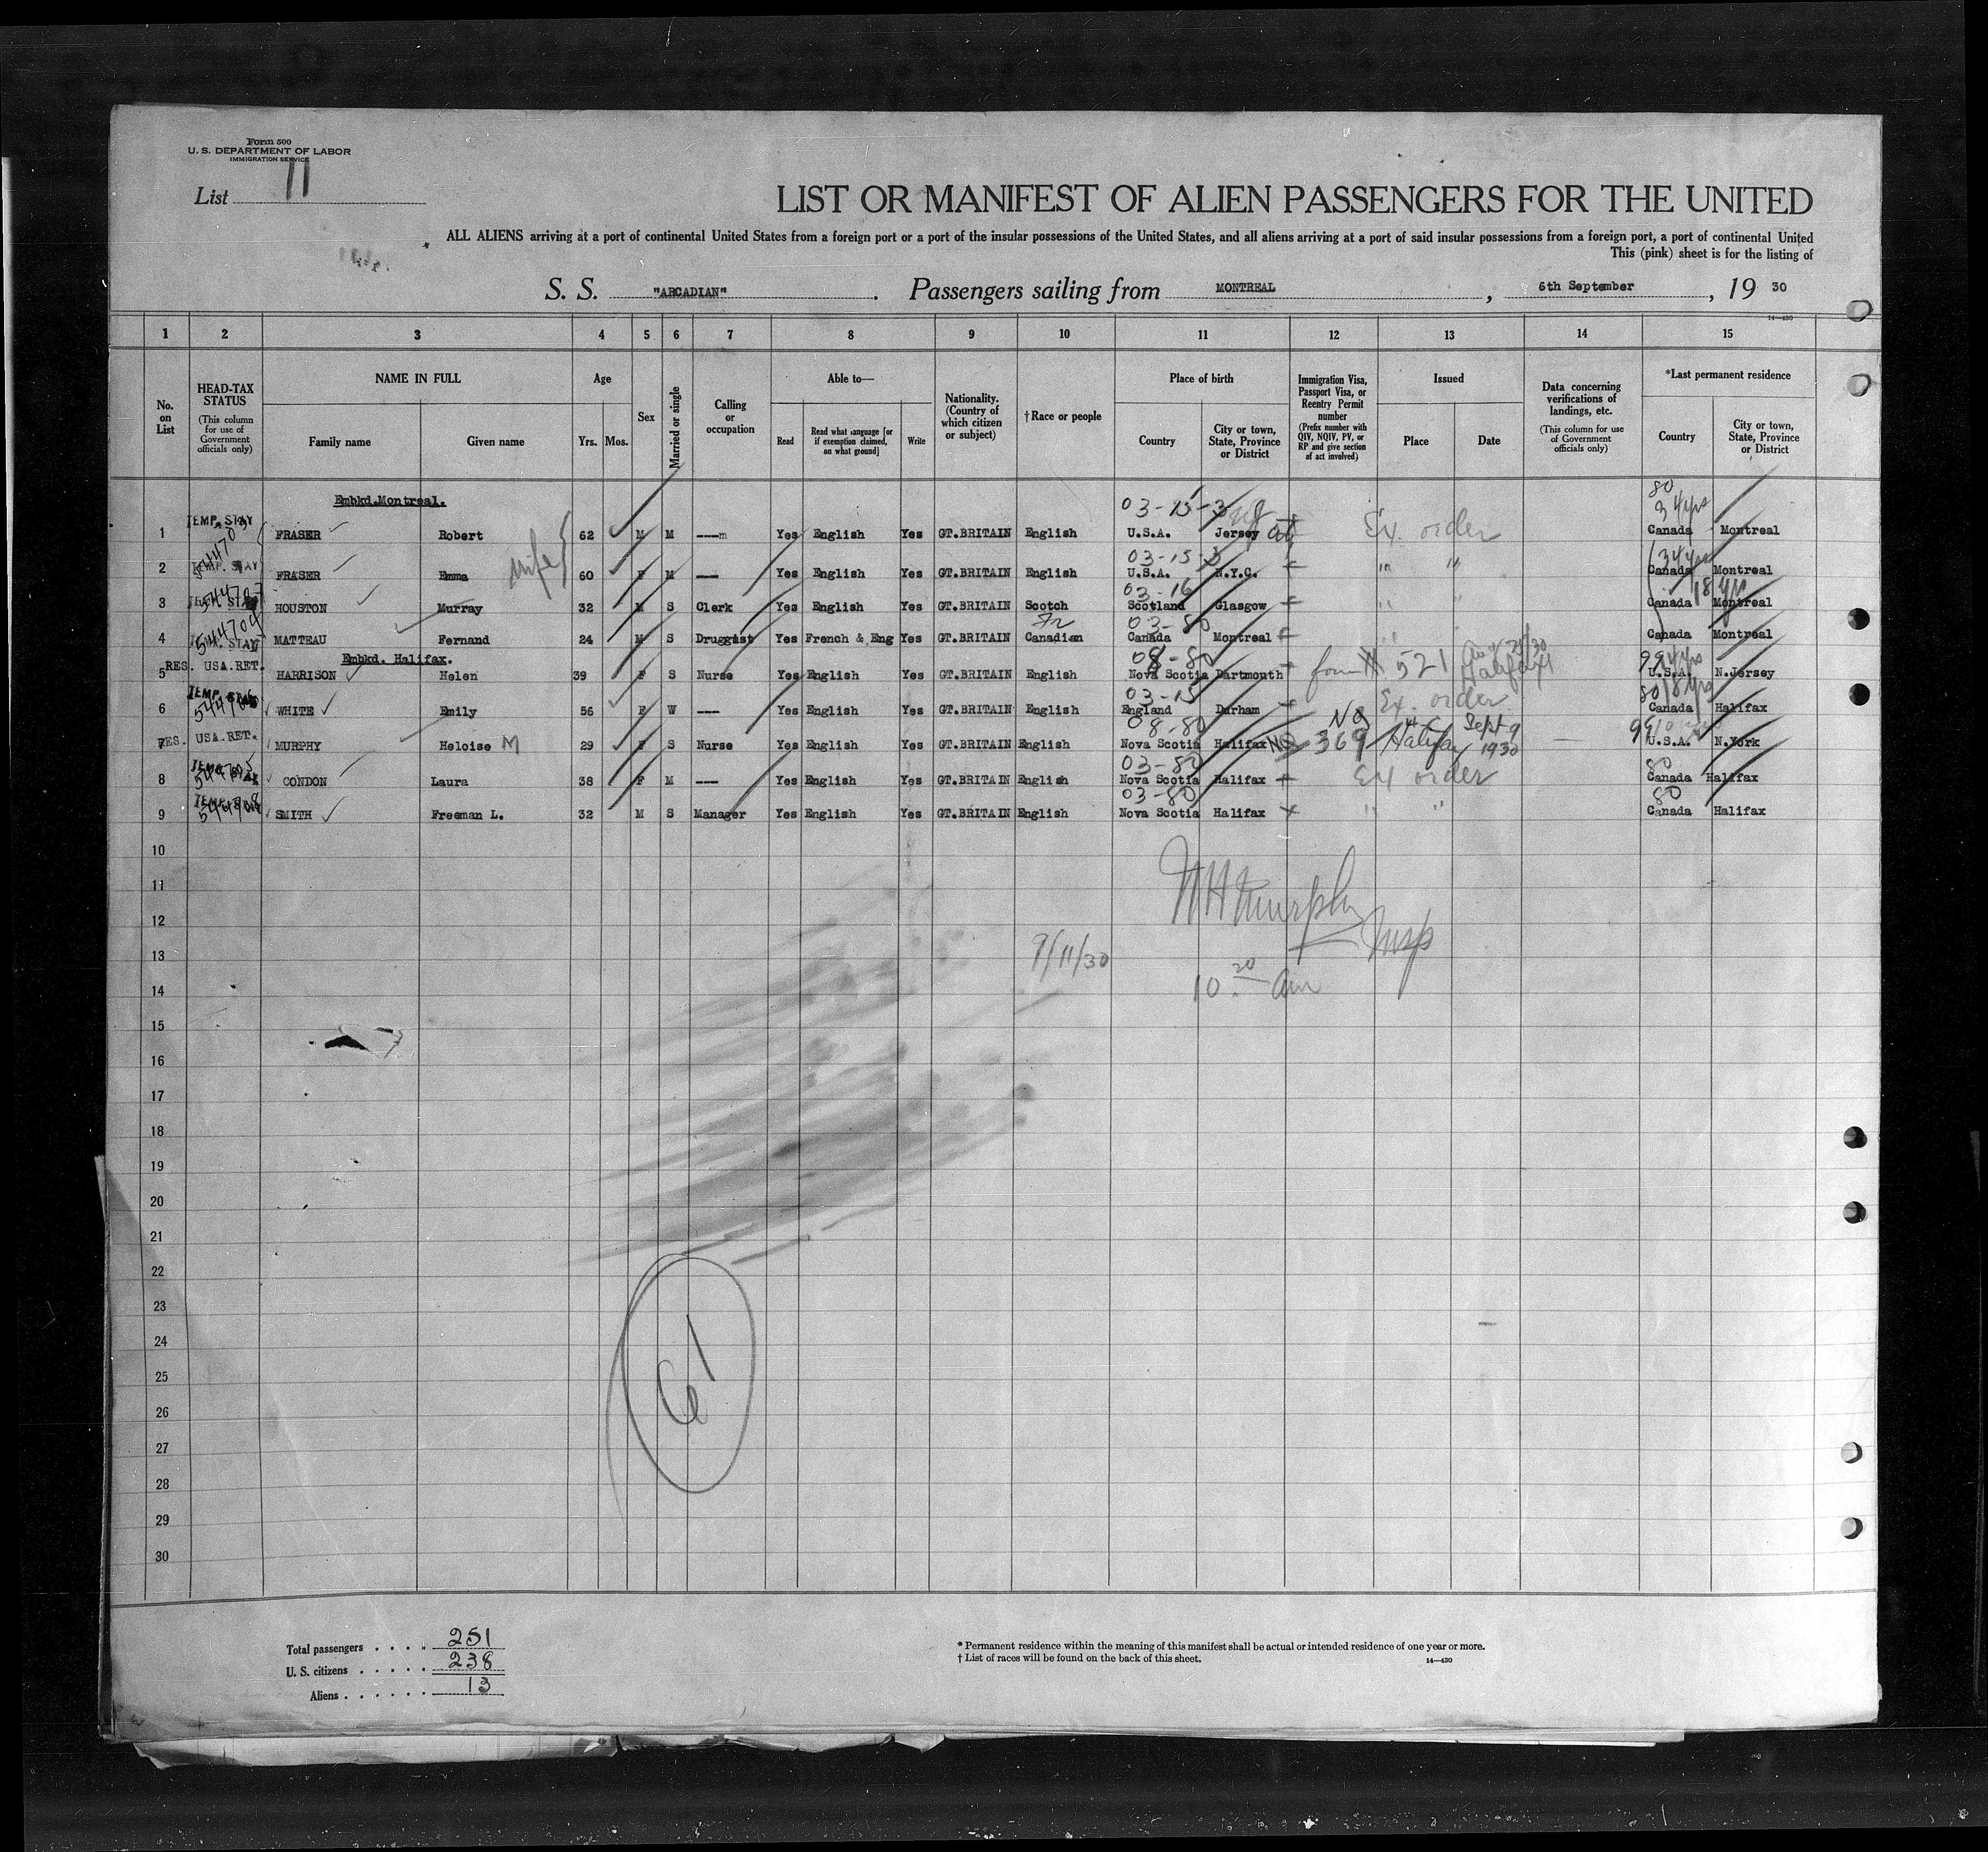 Form 500
U. S. DEPARTMENT OF LABOR
IMMIGRATION SERVICE
List 11
LIST OR MANIFEST OF ALIEN PASSENGERS FOR THE UNITED
ALL ALIENS arriving at a port of continental United States from a foreign port or a port of the insular possessions of the United States, and all aliens arriving at a port of said insular possessions from a foreign port, a port of continental United
This (pink) sheet is for the listing of
S. S. "ARCADIAN". Passengers sailing from MONTREAL, 6th September, 19 30
14—430
1 2 3 4 5 6 7 8 9 10 11 12 13 14 15
No. on List
HEAD-TAX STATUS (This column for use of Government officials only)
NAME IN FULL Family name Given name
Age Yrs. Mos.
Sex
Married or single
Calling or occupation
Able to— Read Read what language [or if exemption claimed, on what ground] Write
Nationality. (Country of which citizen or subject)
†Race or people
Place of birth Country City or town, State, Province or District
Immigration Visa, Passport Visa, or Reentry Permit number (Prefix number with QIV, NQIV, PV, or RP and give section of act involved)
Issued Place Date
Data concerning verifications of landings, etc. (This column for use of Government officials only)
*Last permanent residence Country City or town, State, Province or District
Embkd.Montreal.
03-15-3 80 34 yrs
1 TEMP. STAY FRASER Robert 62 M M ---m Yes English Yes GT.BRITAIN English U.S.A. Jersey Ex. order Canada Montreal
wife
03-15-3 34 yrs
2 TEMP. STAY FRASER Emma 60 F M --- Yes English Yes GT.BRITAIN English U.S.A. N.Y.C. " " Canada Montreal
03-16 18 yrs
3 HOUSTON Murray 32 M S Clerk Yes English Yes GT.BRITAIN Scotch Scotland Glasgow " " Canada Montreal
Fr 03-80
4 544704 MATTEAU Fernand 24 M S Druggist Yes French & Eng Yes GT.BRITAIN Canadian Canada Montreal " " Canada Montreal
Embkd. Halifax.
08-80
5 RES. USA. RET. HARRISON Helen 39 F S Nurse Yes English Yes GT.BRITAIN English Nova Scotia Dartmouth 521 Halifax U.S.A. N.Jersey
03-15 80 18 yrs
6 TEMP. STAY WHITE Emily 56 F W --- Yes English Yes GT.BRITAIN English England Durham Ex. order Canada Halifax
08-80 No Sept 9
7 RES. USA. RET. MURPHY Heloise M 29 F S Nurse Yes English Yes GT.BRITAIN English Nova Scotia Halifax 369 Halifax 1930 — U.S.A. N.York
03-80 80
8 CONDON Laura 38 F M --- Yes English Yes GT.BRITAIN English Nova Scotia Halifax Ex order Canada Halifax
03-80 80
9 SMITH Freeman L. 32 M S Manager Yes English Yes GT.BRITAIN English Nova Scotia Halifax " " Canada Halifax
10
11
12 W H Murphy
13 9/11/30 Insp
14 10.20 am
15
16
17
18
19
20
21
22
23
24
25 61
26
27
28
29
30
Total passengers . . . . 251
U. S. citizens . . . . . 238
Aliens . . . . . . 13
* Permanent residence within the meaning of this manifest shall be actual or intended residence of one year or more.
† List of races will be found on the back of this sheet.
14—430